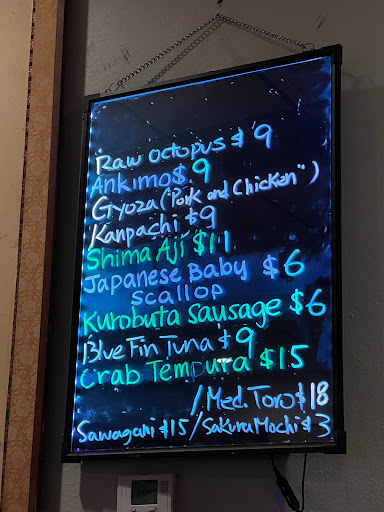 Raw octopus $ 9
Ankimo $ 9
Gyoza ("Pork and Chicken")
Kanpachi $9
Shima Aji $11
Japanese Baby $6
scallop
Kurobuta sausage $6
Blue Fin Tuna $9
Crab Tempura $15
/Med. Toro $18
Sawagani $15 / Sakura Mochi $3